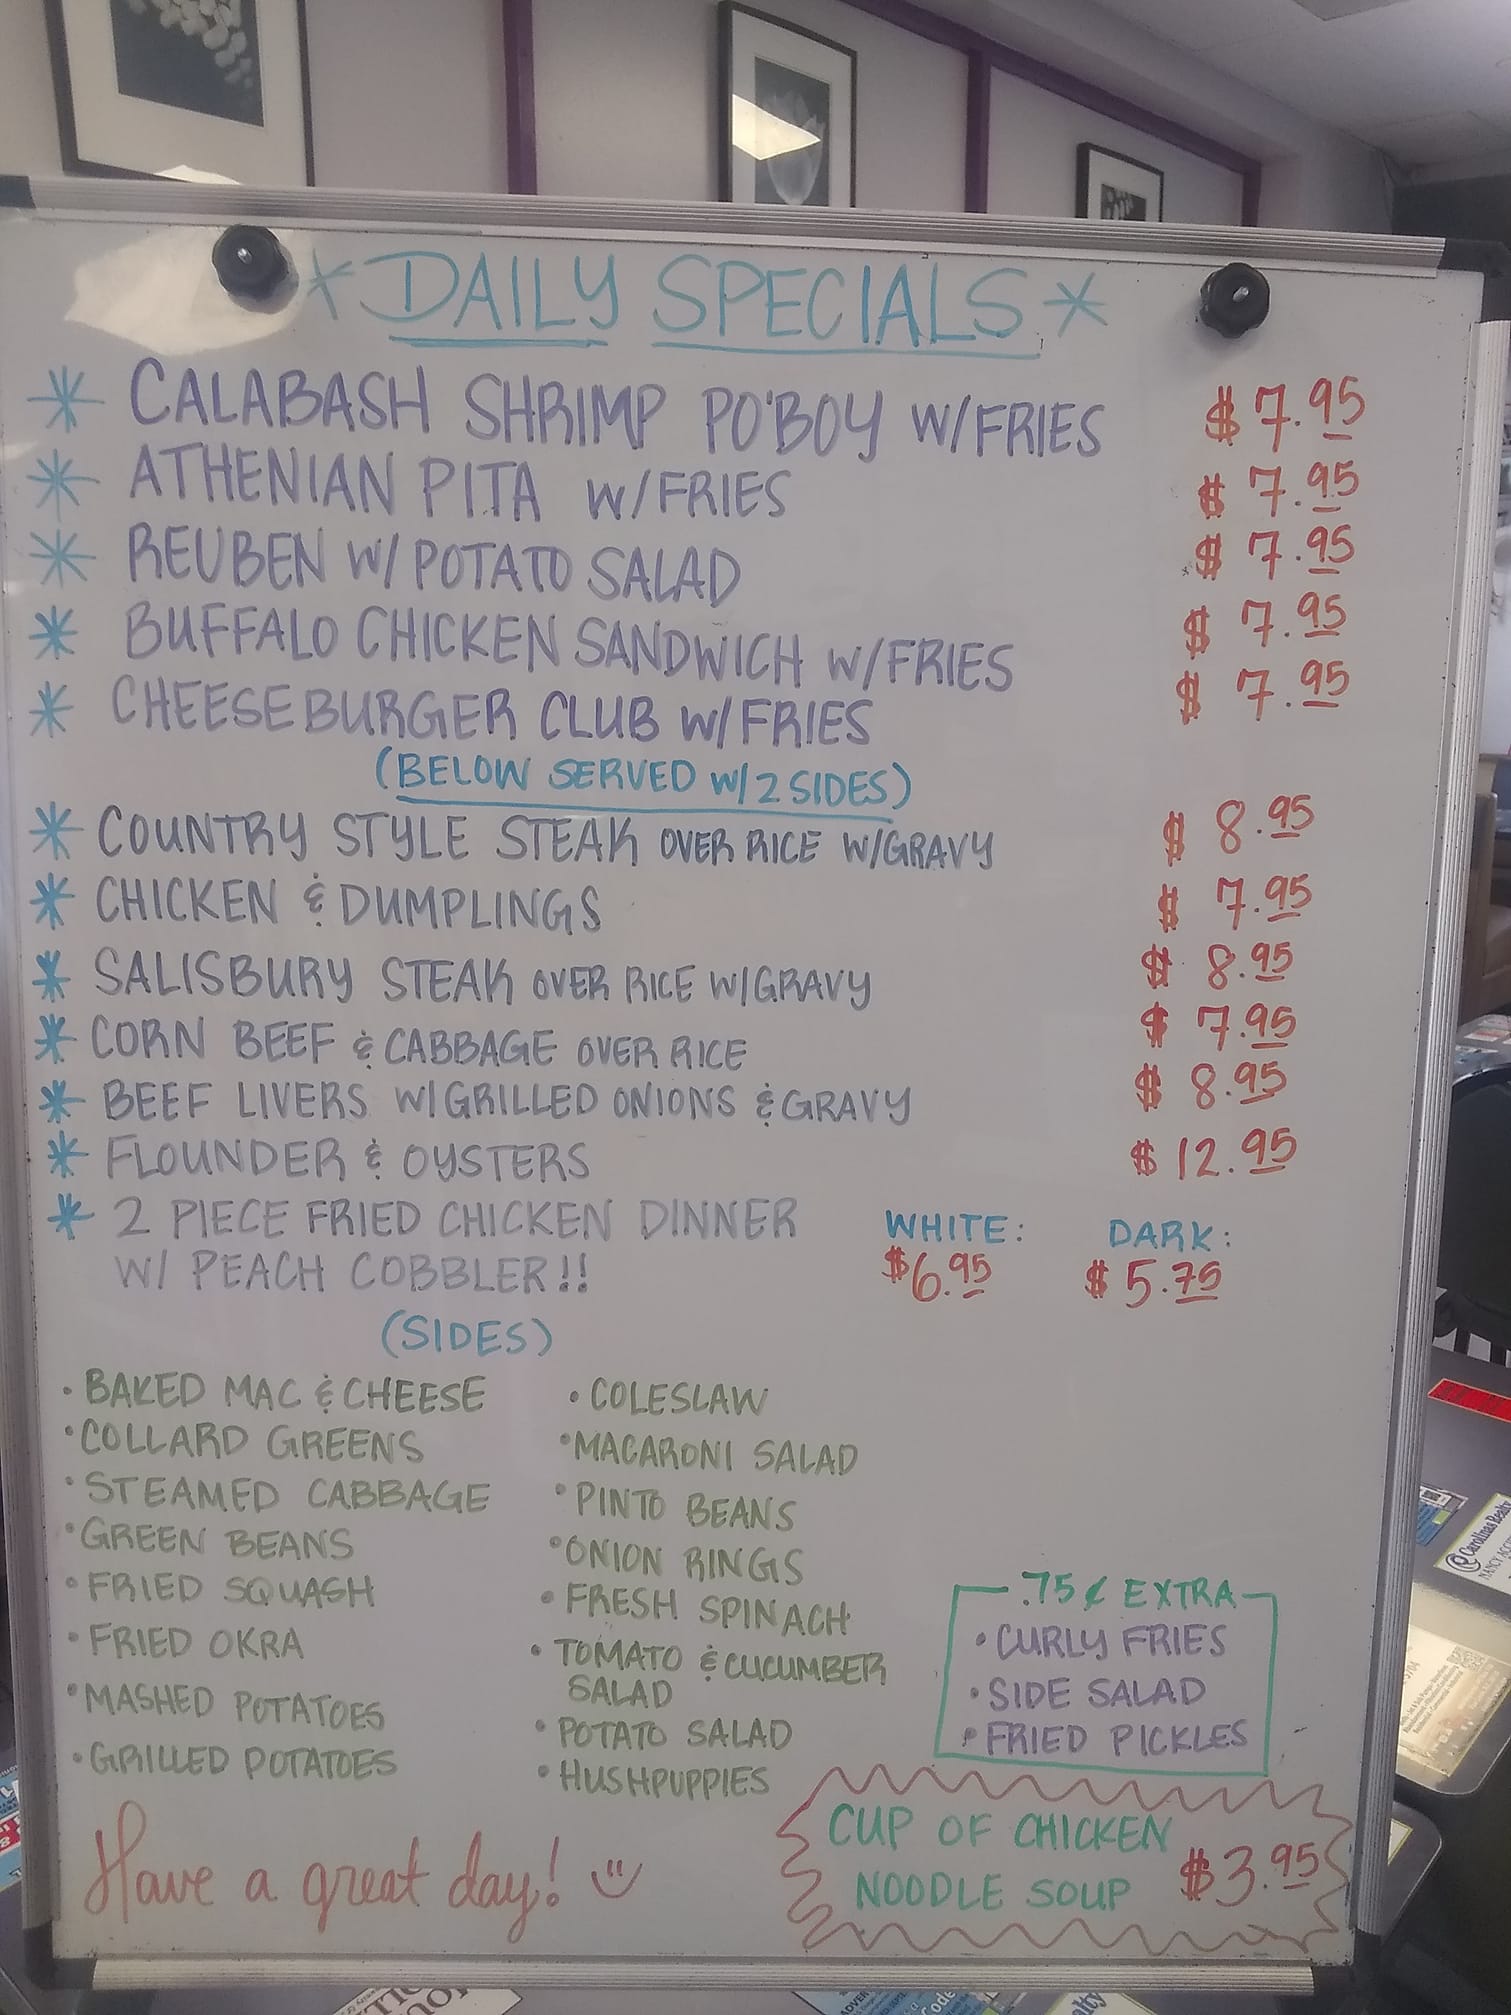 * DAILY SPECIALS *
* CALABASH SHRIMP PO'BOY W/FRIES $7.95
* ATHENIAN PITA W/FRIES $7.95
* REUBEN W/ POTATO SALAD $7.95
* BUFFALO CHICKEN SANDWICH W/FRIES $7.95
* CHEESEBURGER CLUB W/FRIES $7.95
(BELOW SERVED W/2 SIDES)
* COUNTRY STYLE STEAK OVER RICE W/GRAVY $8.95
* CHICKEN & DUMPLINGS $7.95
* SALISBURY STEAK OVER RICE W/GRAVY $8.95
* CORN BEEF & CABBAGE OVER RICE $7.95
* BEEF LIVERS W/GRILLED ONIONS & GRAVY $8.95
* FLOUNDER & OYSTERS $12.95
* 2 PIECE FRIED CHICKEN DINNER WHITE: DARK:
W/ PEACH COBBLER!! $6.95 $5.75
(SIDES)
• BAKED MAC & CHEESE
• COLLARD GREENS
• STEAMED CABBAGE
• GREEN BEANS
• FRIED SQUASH
• FRIED OKRA
• MASHED POTATOES
• GRILLED POTATOES
• COLESLAW
• MACARONI SALAD
• PINTO BEANS
• ONION RINGS
• FRESH SPINACH
• TOMATO & CUCUMBER
SALAD
• POTATO SALAD
• HUSHPUPPIES
.75¢ EXTRA
• CURLY FRIES
• SIDE SALAD
• FRIED PICKLES
CUP OF CHICKEN
NOODLE SOUP $3.95
Have a great day!
@Carolinas Realty